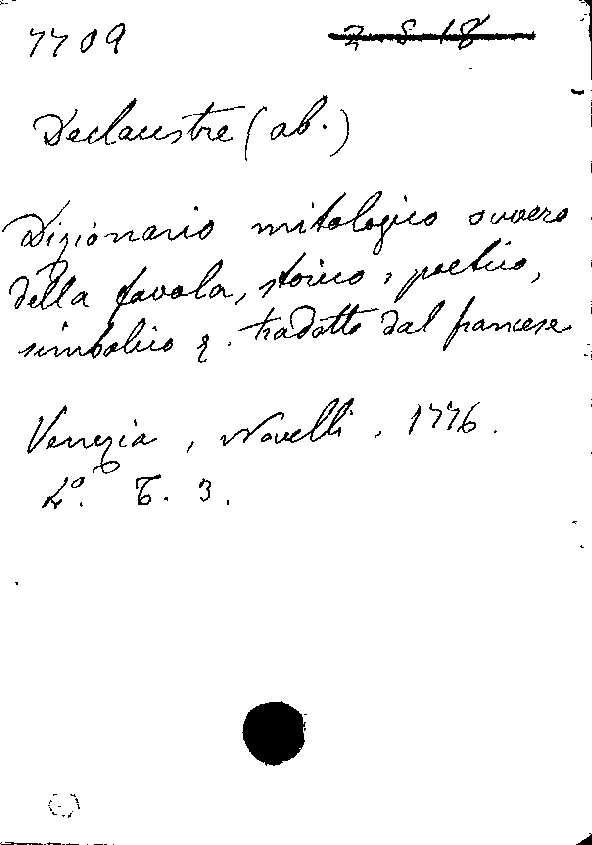 7709 2 8 18
Declaustre (ab.)
Dizionario mitologico ovvero
della favola, storico, poetico,
simbolico &. tradotto dal francese
Venezia, Novelli, 1776.
4º. T. 3.